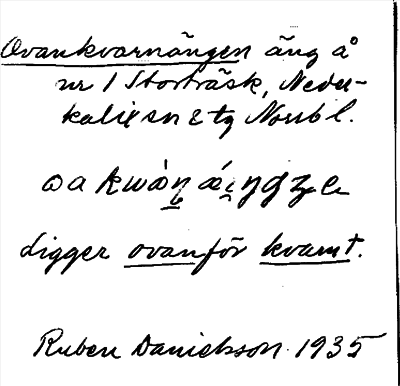 Ovankvarnängen äng å
nr 1 Storträsk, Neder-
kalix sn & tg Norrb l.
ligger ovanför kvarnt.
Ruben Danielsson 1935